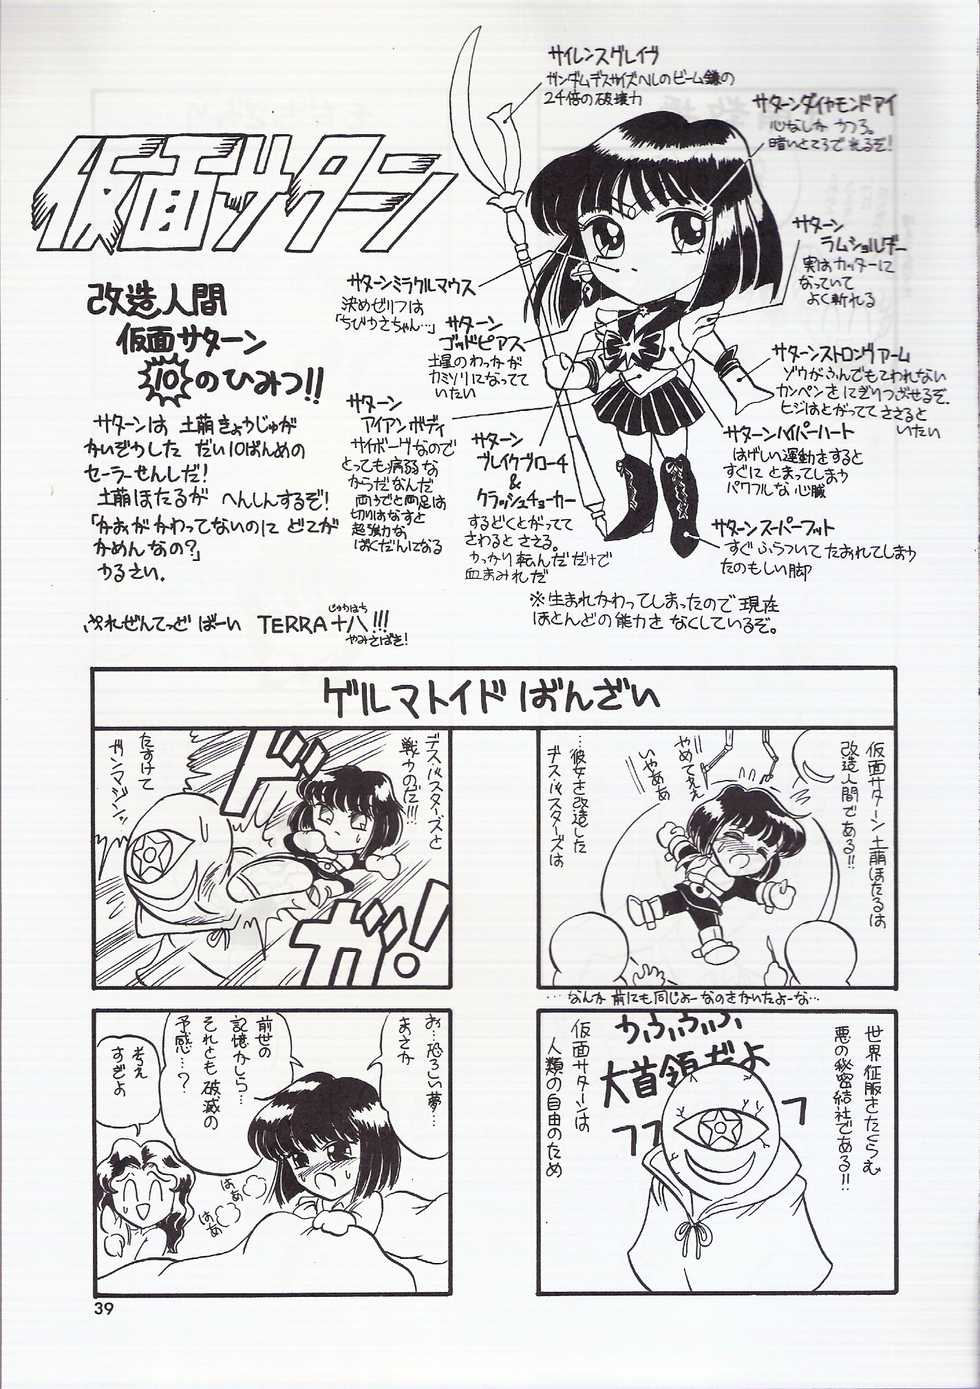 仮面サターン
改造人間
仮面サターン
10のひみつ!!
サターンは 土萌きょうじゅが
かいぞうした だい10ばんめの
セーラーせんしだ!
土萌ほたるが へんしんするぞ!
「かおがかわってないのに どこが
かめんなの?」
うるさい.
ぷれぜんてっど ばーい TERRA十八!!!
じゅうはち
やみさばき!
サイレンスグレイヴ
ガンダムデスサイズHLのビーム鎌の
24倍の破壊力
サターンダイヤモンドアイ
心なしか うつろ。
暗いとこでも見えるぞ!
サターン
ラムショルダー
実はカッターに
なっていて
よく斬れる
サターンミラクルマウス
決めゼリフは
「ちびうさちゃん…」
サターン
ゴッドピアス
土星のわっかが
カミソリになってて
いたい
サターンストロングアーム
ゾウがふんでもこわれない
カンペンをにぎりつぶせるぞ.
ヒジはとがってて ささると
いたい
サターン
アイアンボディ
サイボーグなので
とっても病弱な
からだなんだ
両うでと両足は
切りはなすと
超強力な
ばくだんになる
サターン
ブレイクブローチ
&
クラッシュチョーカー
するどくとがってて
さわると ささる。
うっかり転んだだけで
血まみれだ
サターンハイパーハート
はげしい運動をすると
すぐに とまってしまう
パワフルな 心臓
サターンスーパーフット
すぐ ふらついて たおれてしまう
たのもしい脚
※生まれかわってしまったので 現在
ほとんどの能力を なくしているぞ。
ゲルマトイド ばんざい
仮面サターン 土萌ほたるは
改造人間である!!
やめてえぇ
いやああ
…彼女を改造した
デス・バスターズは
…なんか 前にも同じよーなのをかいたよーな…
世界征服をたくらむ
悪の秘密結社である!!
うふふふふ
大首領だよ
フ
フフ
仮面サターンは
人類の自由のため
デス・バスターズと
戦うのだ!!!
ドド
ガガ!
たすけて
ガンマジンッ
お…恐ろしい夢…
まさか
前世の
記憶かしら…
それとも 破滅の
予感…?
はあ
はあ
考え
すぎよ
39